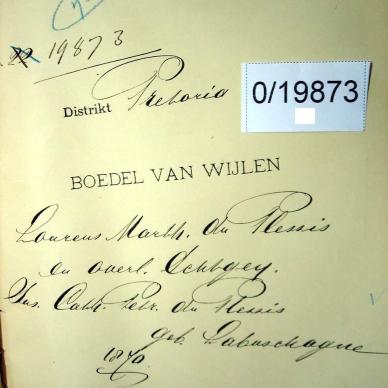 19873
Distrikt Pretoria
0/19873
BOEDEL VAN WIJLEN
Lourens Marth. du Plessis
en overl. Echtgen.
Cath. Petr. du Plessis
geb. Labuschagne
1870